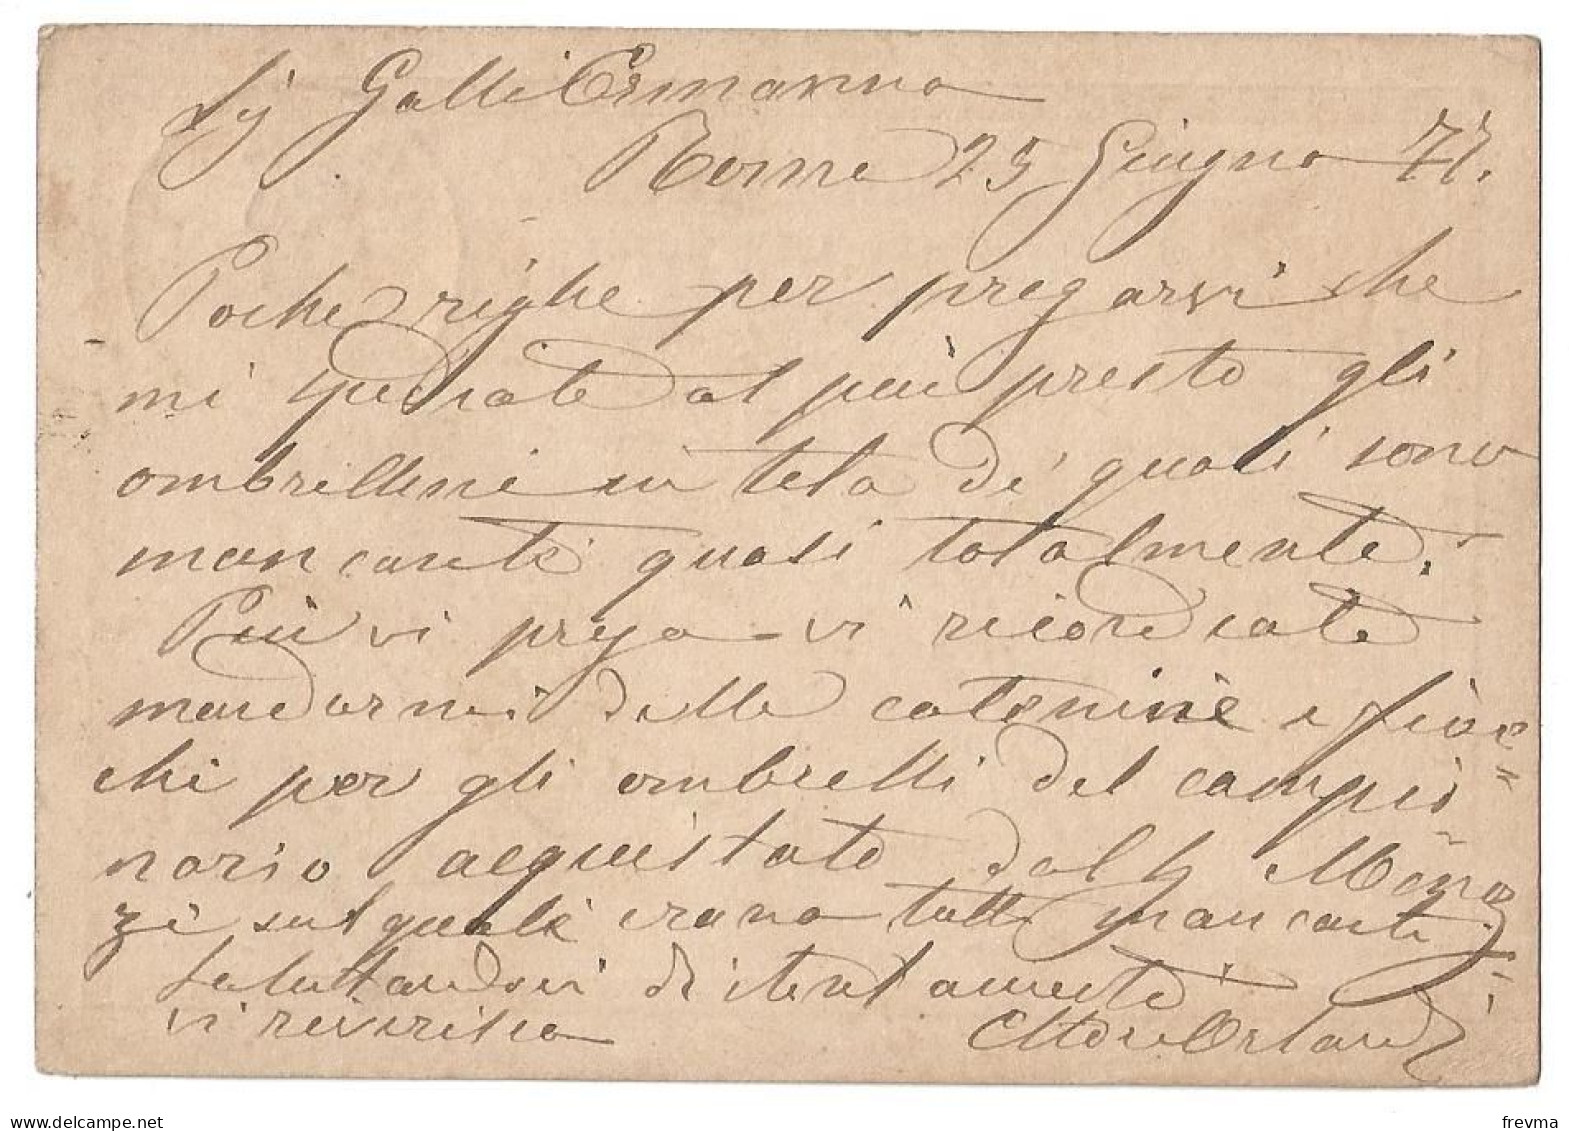 Sig Galli Ermanno
Roma 25 Giugno 77.
Poche righe per pregarvi che
mi spediate al più presto gli
ombrellini in tela de' quali sono
mancante quasi totalmente.
Più vi prego vi ricordiate
mandarmi delle catenine e fioc=
chi per gli ombrelli del campio
nario acquistato dal Sig
zi sul quale erano tutti mancanti
Salutandovi distintamente
vi riverisco Ettore Orlandi
www.delcampe.net
frevma